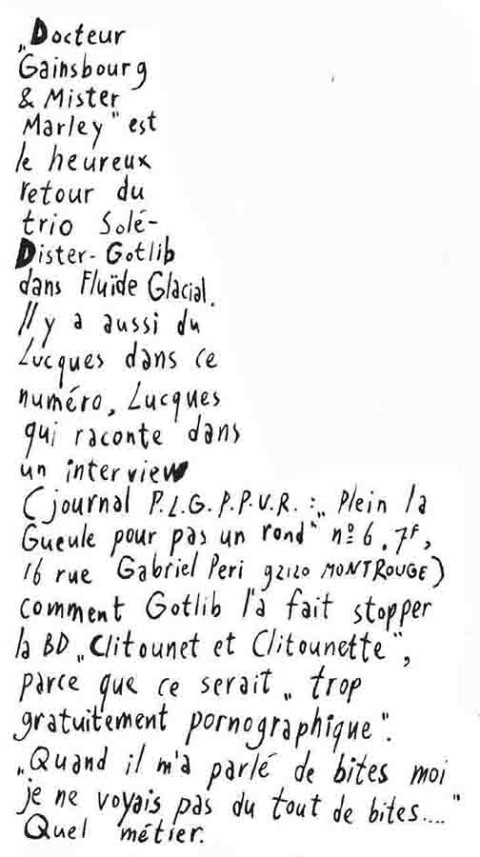 „Docteur
Gainsbourg
& Mister
Marley" est
le heureux
retour du
trio Solé-
Dister-Gotlib
dans Fluïde Glacial.
Il y a aussi du
Lucques dans ce
numéro, Lucques
qui raconte dans
un interview
(journal P.L.G.P.P.V.R. :„ Plein la
Gueule pour pas un rond" nº 6, 7F,
16 rue Gabriel Peri 92120 MONTROUGE)
comment Gotlib l'a fait stopper
la BD „Clitounet et Clitounette",
parce que ce serait „ trop
gratuitement pornographique".
„Quand il m'a parlé de bites moi
je ne voyais pas du tout de bites...."
Quel métier.